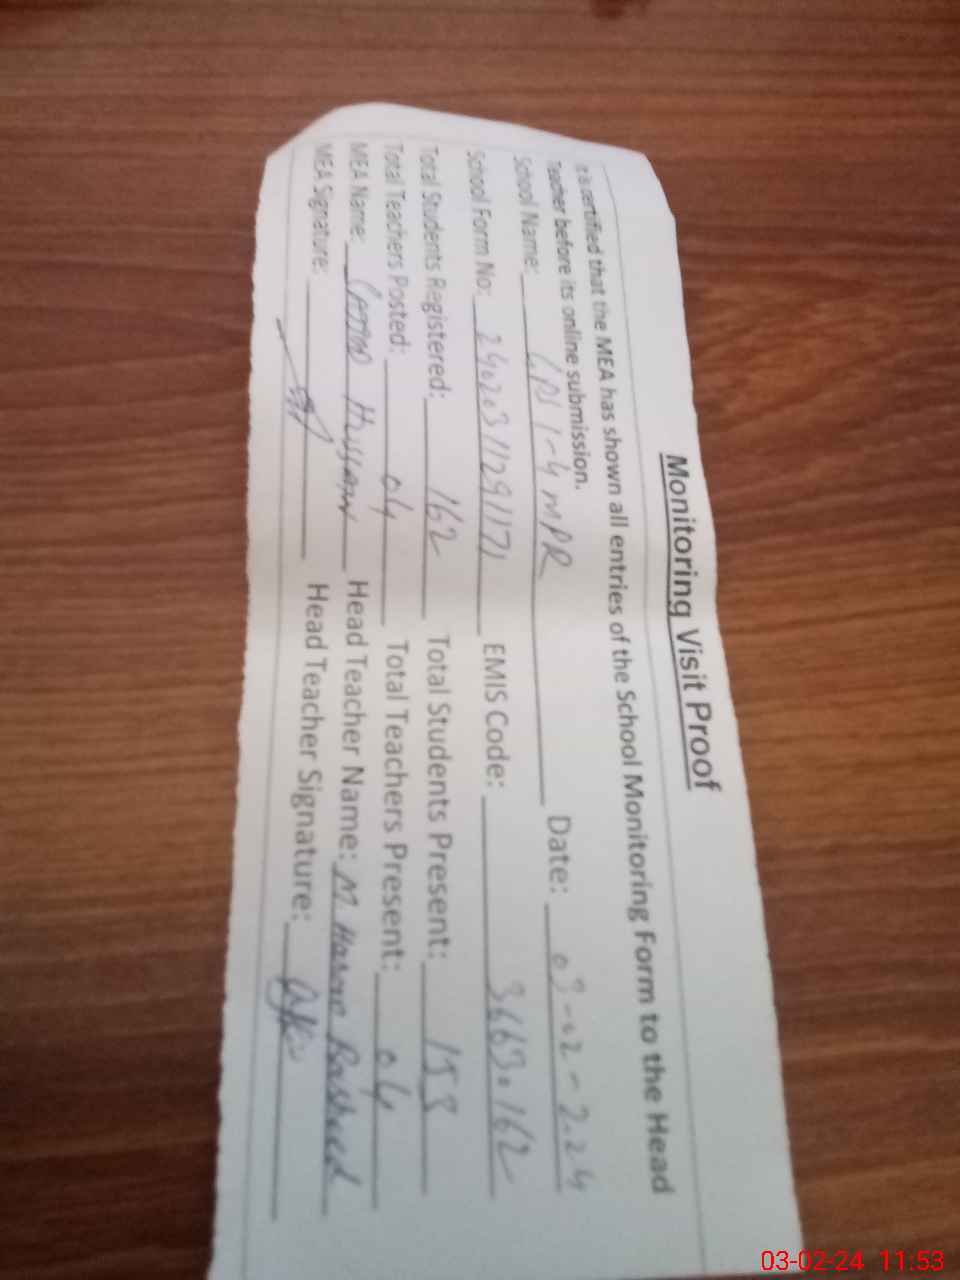 Monitoring Visit Proof
It is certified that the MEA has shown all entries of the School Monitoring Form to the Head
Teacher before its online submission.
School Name: GPS 1-4 MPR Date: 03-02-2024
School Form No: 24020311291171 EMIS Code: 36630162
Total Students Registered: 162 Total Students Present:
Total Teachers Posted: 04 Total Teachers Present: 04
MEA Name: Hussain Head Teacher Name: M Rasheed
MEA Signature: Head Teacher Signature:
03-02-24 11:53